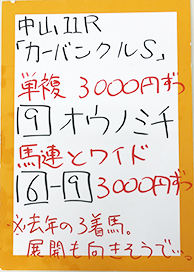 中山11R
「カーバンクルS」
単複 3000円ずつ
9 オウノミチ
馬連とワイド
6-9 3000円ずつ
※去年の3着馬。
展開も向きそうで…